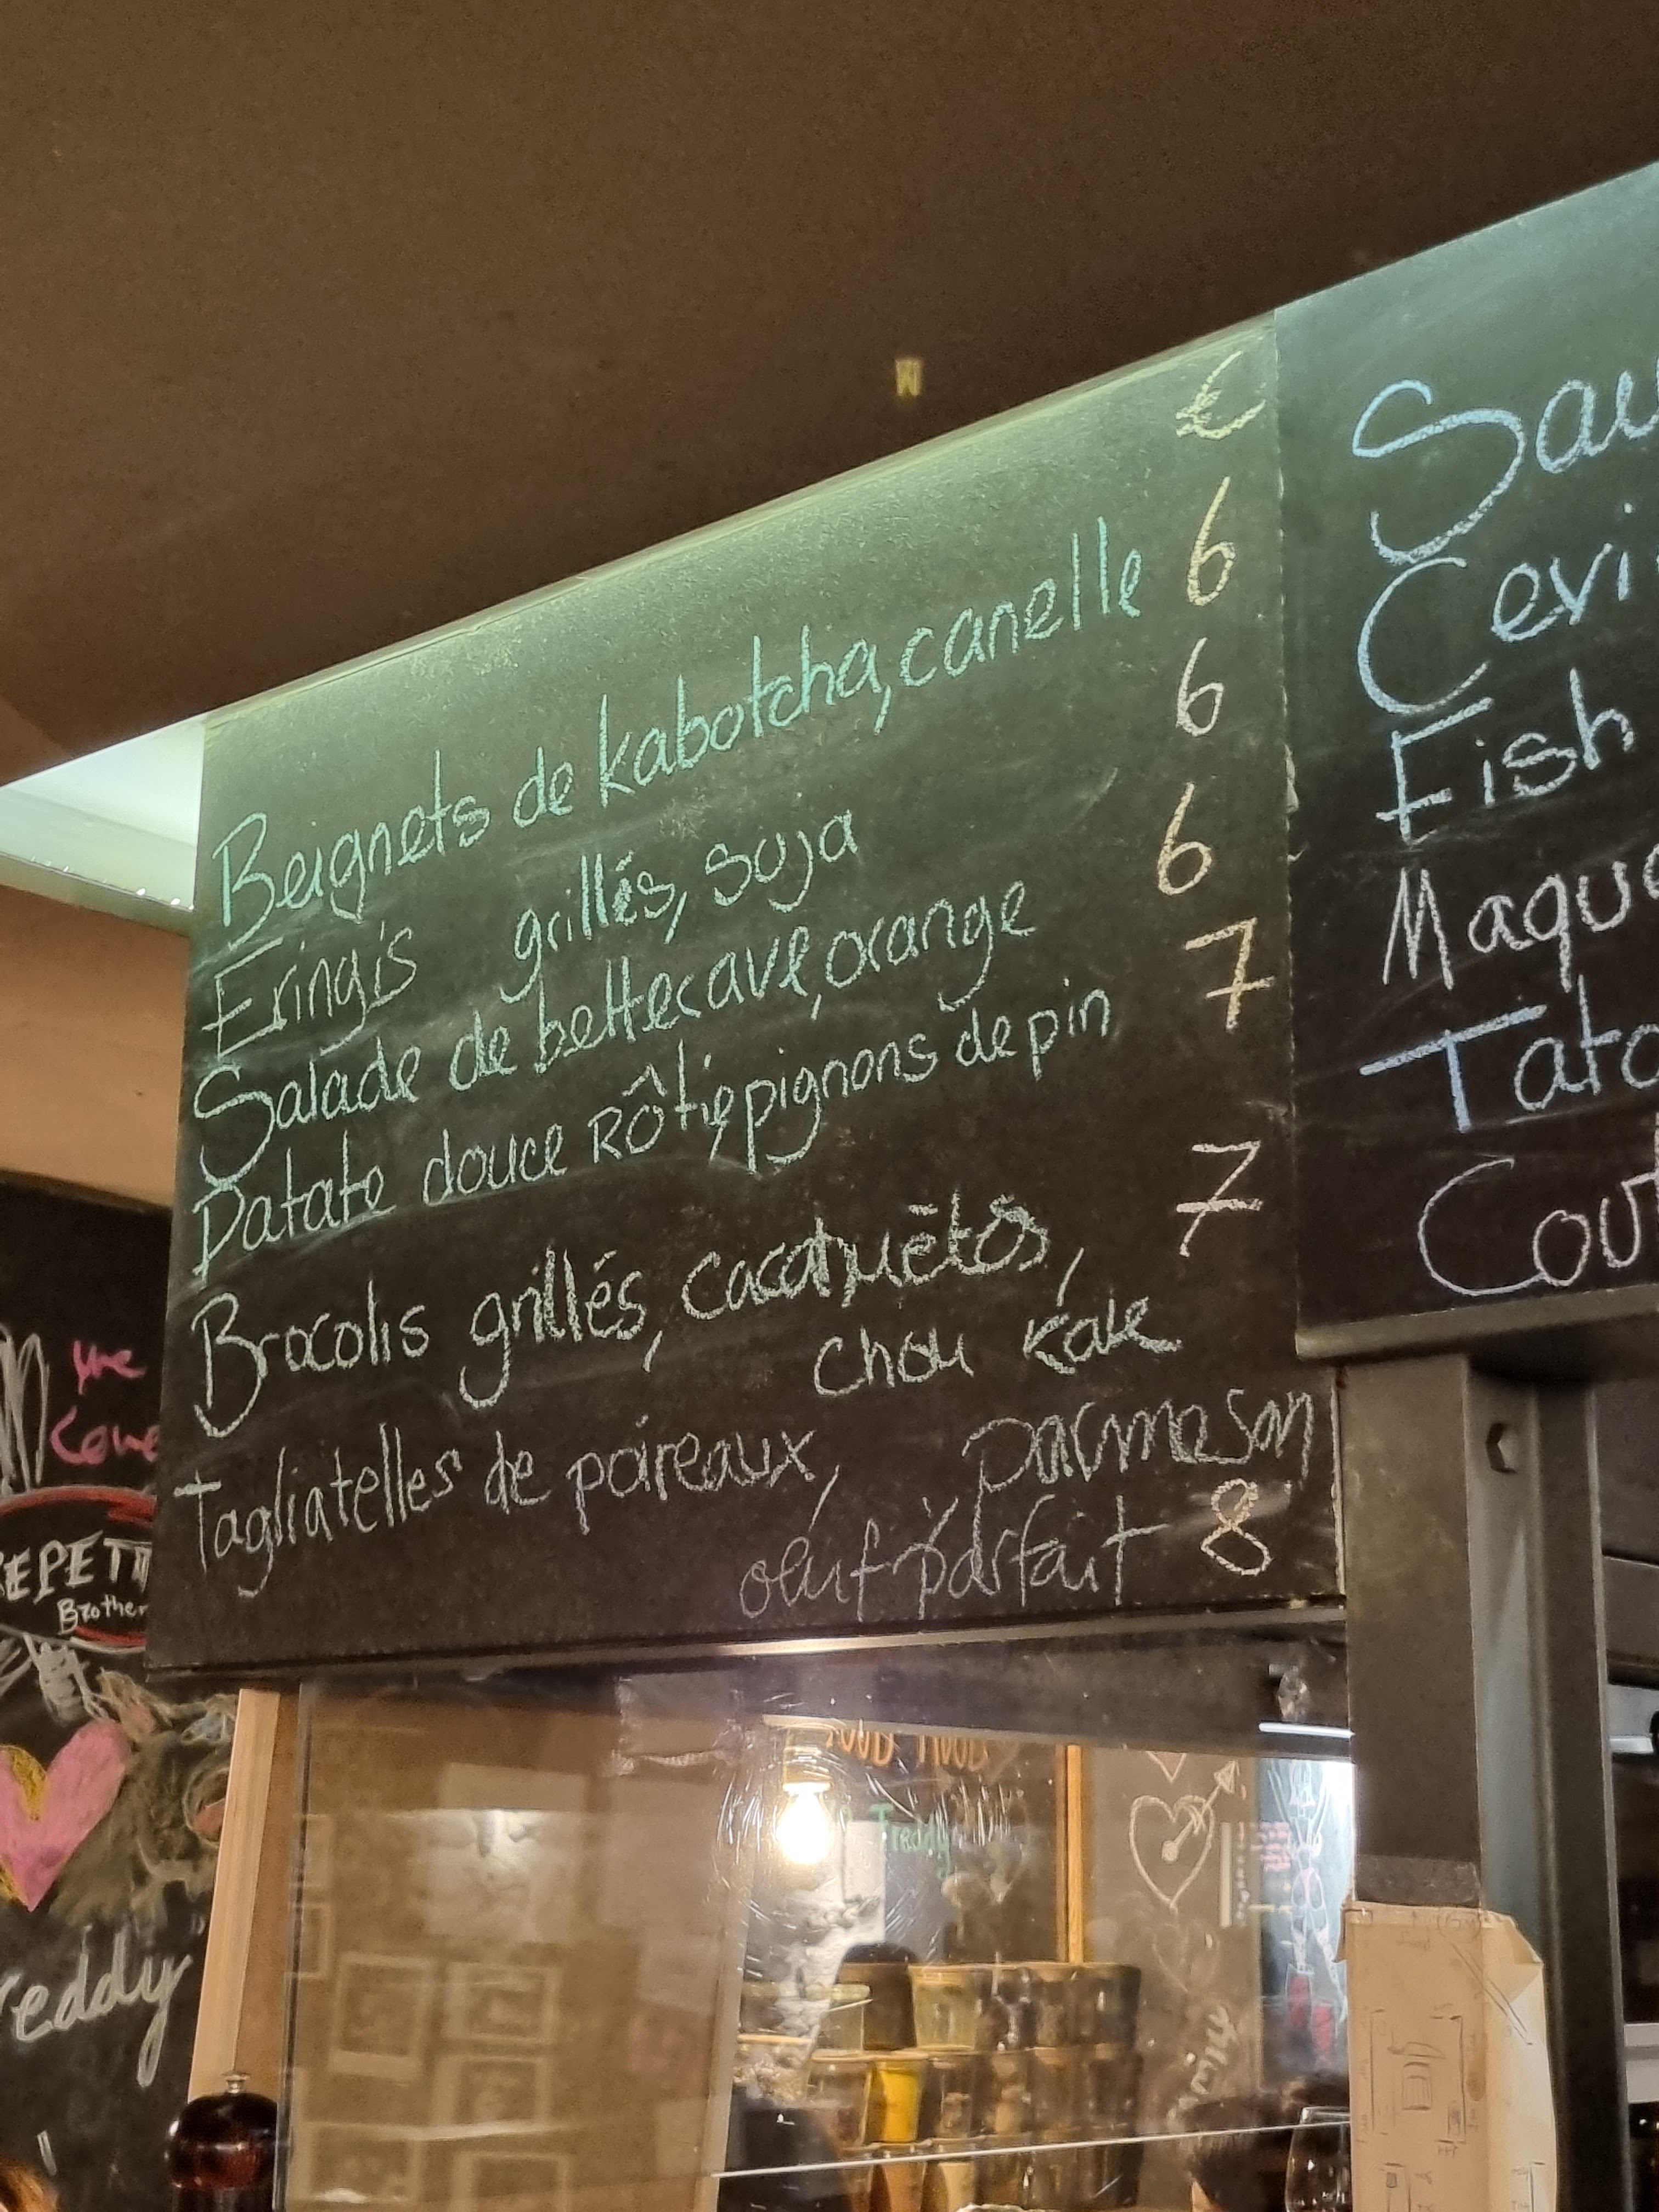 €
Beignets de kabotcha, canelle 6
Eringis grillés, soja 6
Salade de betterave, orange 6
Patate douce Rôtie, pignons de pin 7
Brocolis grillés, cacahuètes, 7
chou kale
Tagliatelles de poireaux, parmesan
oeuf parfait 8
Cevi
Fish
Maqu
Tata
REPETTI
Brother
Freddy
eddy"